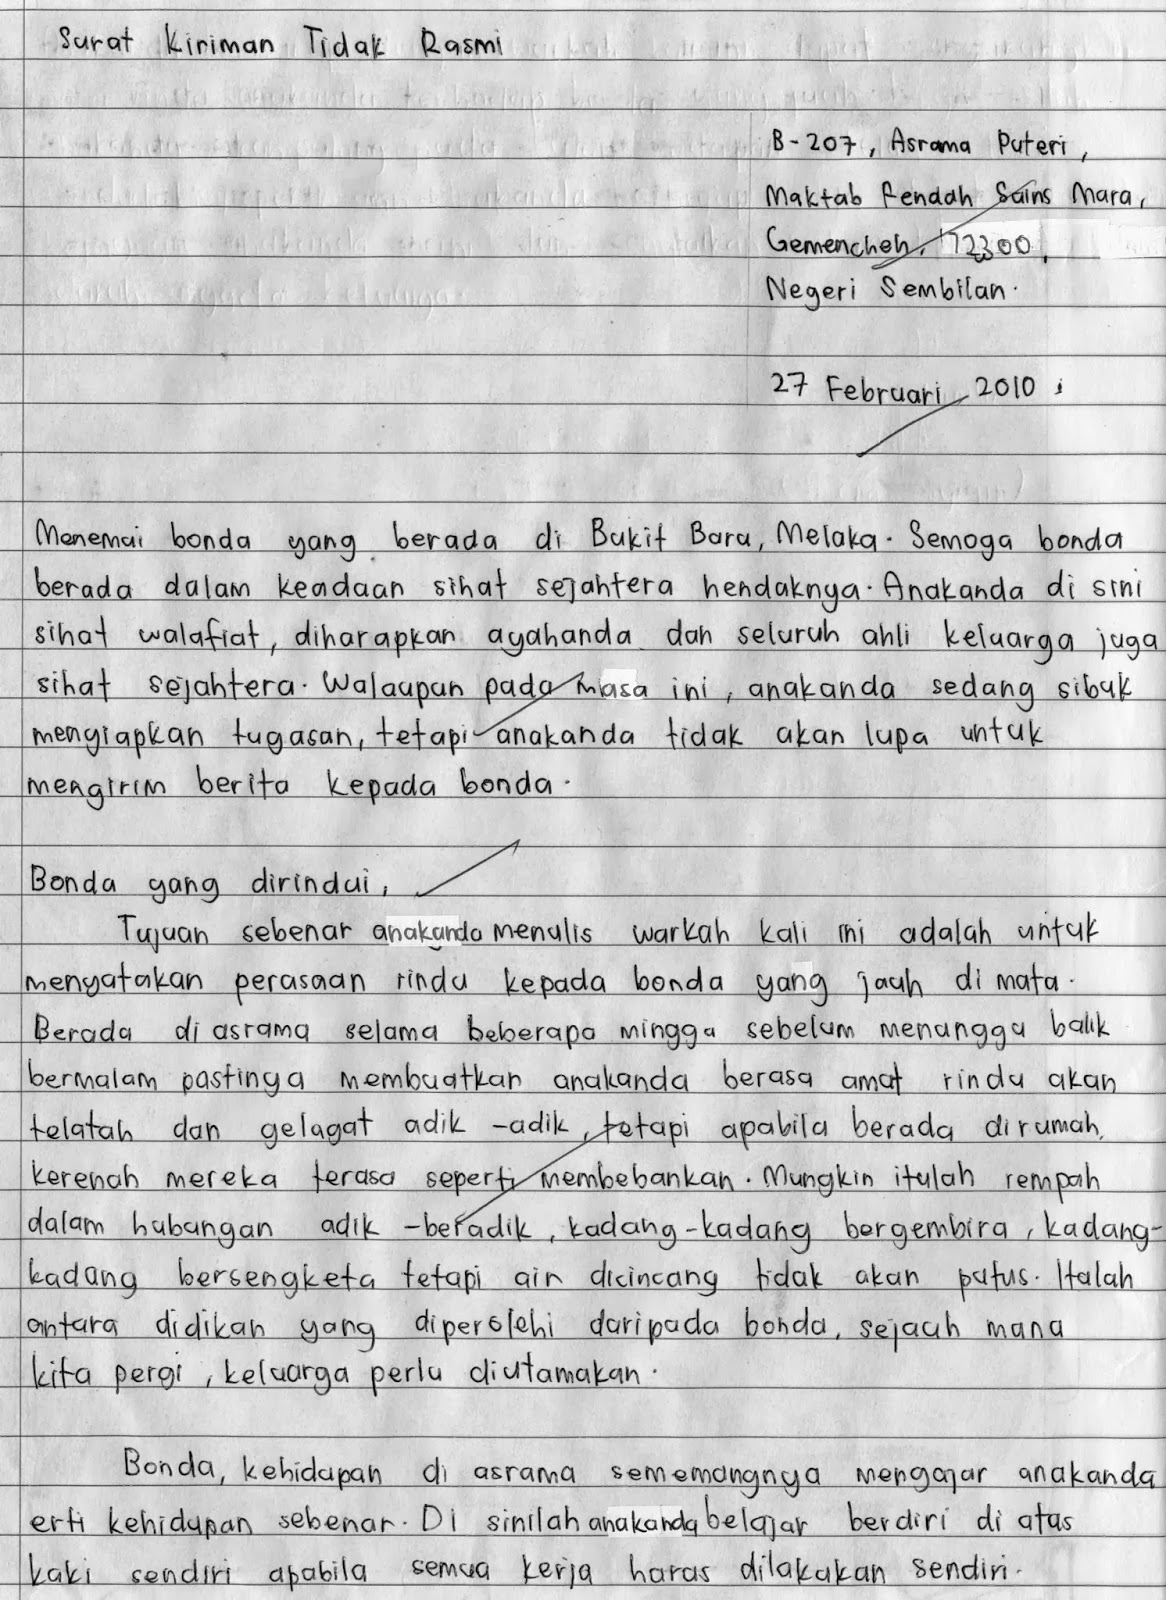 Surat Kiriman Tidak Rasmi
B-207, Asrama Puteri,
Maktab Rendah Sains Mara,
Gemencheh, 72300,
Negeri Sembilan.
27 Februari 2010.
Menemui bonda yang berada di Bukit Baru, Melaka. Semoga bonda
berada dalam keadaan sihat sejahtera hendaknya. Anakanda di sini
sihat walafiat, diharapkan ayahanda dan seluruh ahli keluarga juga
sihat sejahtera. Walaupun pada masa ini, anakanda sedang sibuk
menyiapkan tugasan, tetapi anakanda tidak akan lupa untuk
mengirim berita kepada bonda.
Bonda yang dirindui,
Tujuan sebenar anakanda menulis warkah kali ini adalah untuk
menyatakan perasaan rindu kepada bonda yang jauh di mata.
Berada di asrama selama beberapa minggu sebelum menunggu balik
bermalam pastinya membuatkan anakanda berasa amat rindu akan
telatah dan gelagat adik-adik, tetapi apabila berada dirumah,
kerenah mereka terasa seperti membebankan. Mungkin itulah rempah
dalam hubungan adik-beradik, kadang-kadang bergembira, kadang-
kadang bersengketa tetapi air dicincang tidak akan putus. Itulah
antara didikan yang diperolehi daripada bonda, sejauh mana
kita pergi, keluarga perlu diutamakan.
Bonda, kehidupan di asrama sememangnya mengajar anakanda
erti kehidupan sebenar. Di sinilah anakanda belajar berdiri di atas
kaki sendiri apabila semua kerja harus dilakukan sendiri.